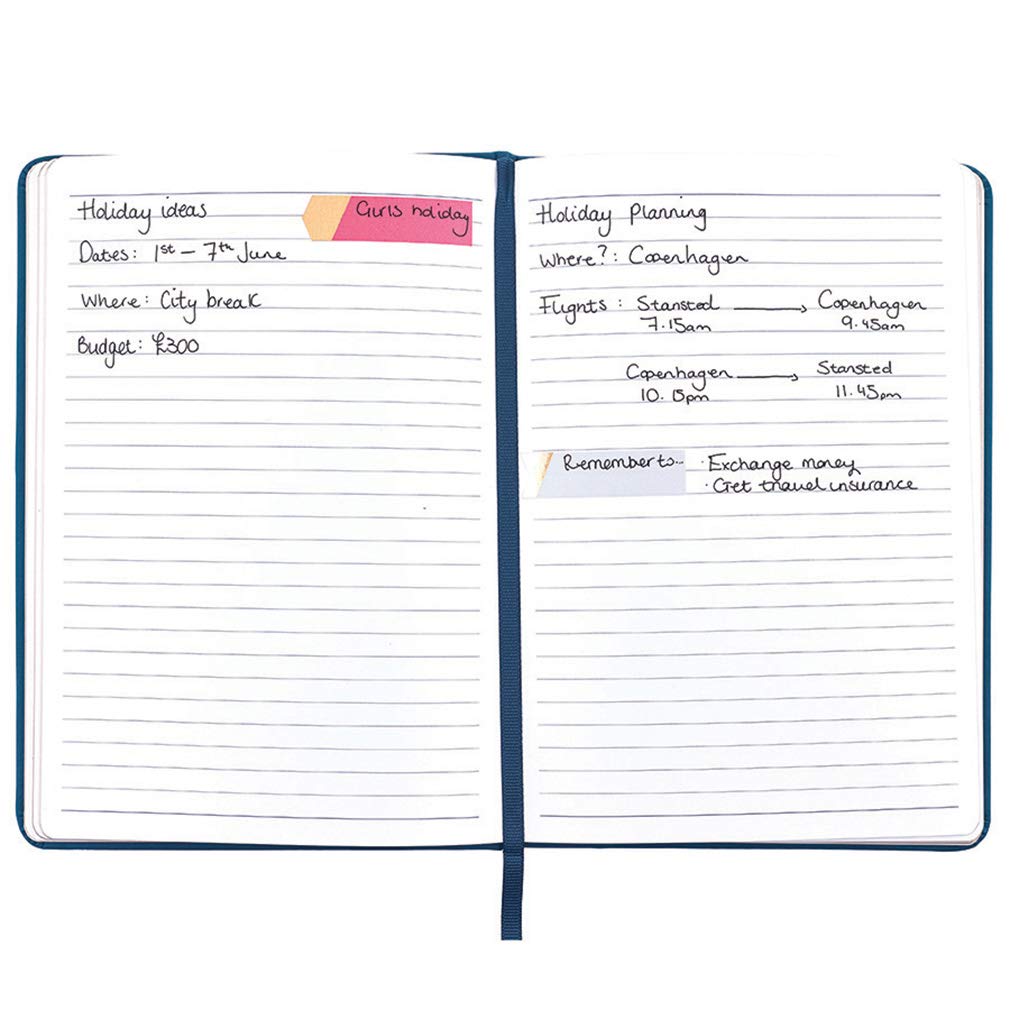 Holiday ideas
Girls holiday
Dates: 1st - 7th June
Where: City break
Budget: £300
Holiday Planning
Where?: Copenhagen
Flights: Stansted → Copenhagen
7.15am 9.45am
Copenhagen → Stansted
10.15pm 11.45pm
Remember to... · Exchange money
· Get travel insurance